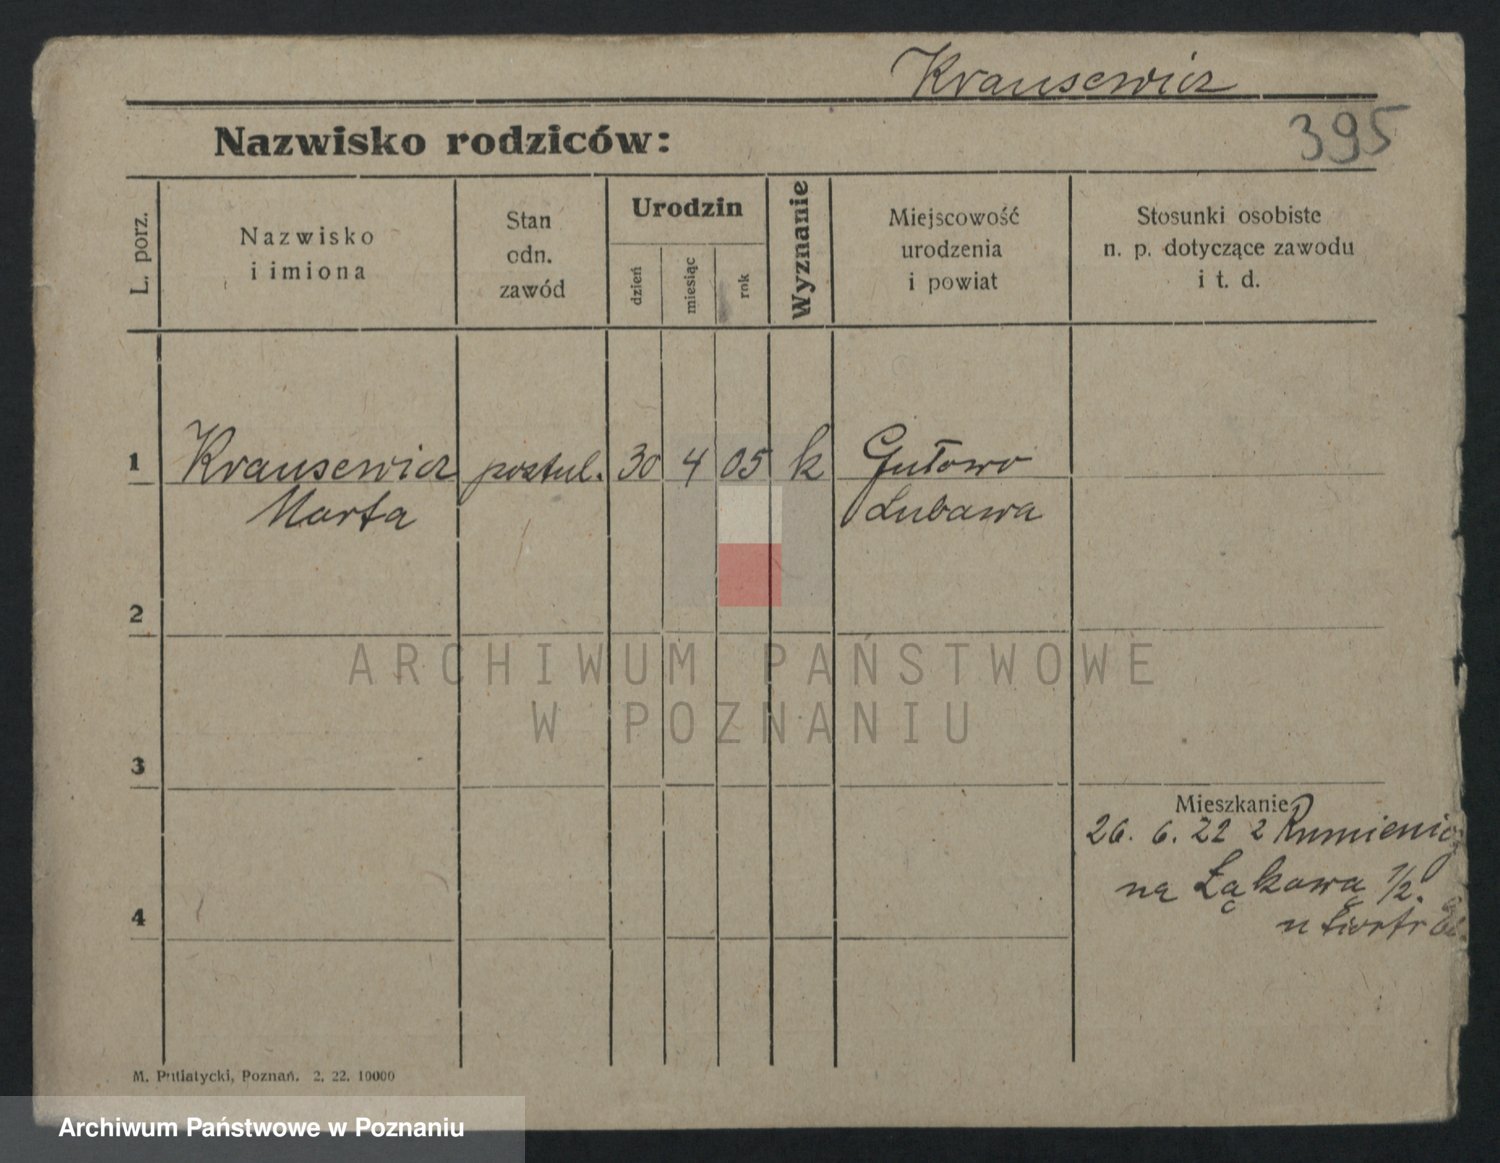 Krausewicz
395
Nazwisko rodziców:
L. porz.
Nazwisko
i imiona
Stan
odn.
zawód
Urodzin
dzień
miesiąc
rok
Wyznanie
Miejscowość
urodzenia
i powiat
Stosunki osobiste
n. p. dotyczące zawodu
i t. d.
1
Krausewicz postul. 30 4 05 k Gutowo
Marta Lubawa
2
ARCHIWUM PAŃSTWOWE
W POZNANIU
3
Mieszkanie
26. 6. 22 z
na Łąkową 1/2.
4
M. Putiatycki, Poznań. 2. 22. 10000
Archiwum Państwowe w Poznaniu